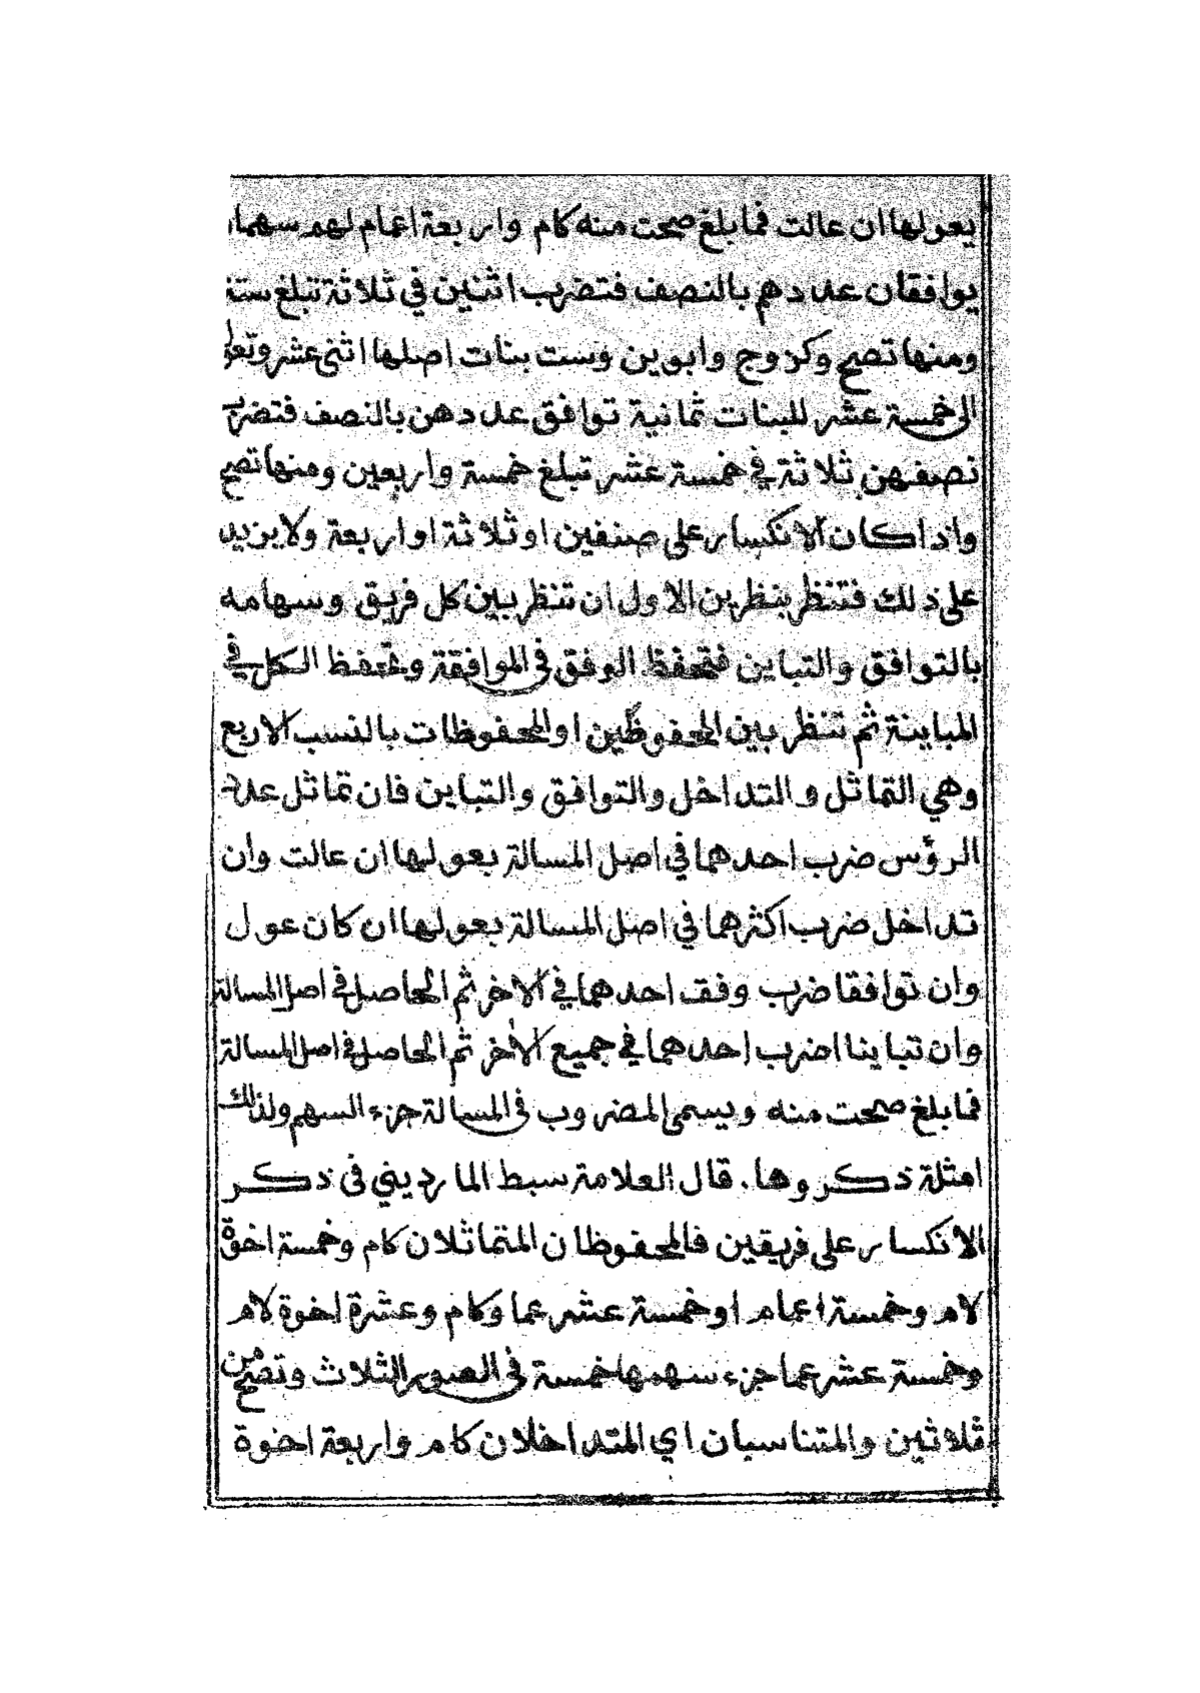 بعولها ان عالت فما بلغ صحت منه كام واربعة اعمام لهم سهمان
يوافقان عددهم بالنصف فتضرب اثنين في ثلاثة تبلغ ستة
ومنها تصح وكزوج وابوين وست بنات اصلها اثنى عشر وتعول
الى خمسة عشر للبنات ثمانية توافق عددهن بالنصف فتضرب
نصفهن ثلاثة في خمسة عشر تبلغ خمسة واربعين ومنها تصح
واذا كان الانكسار على صنفين او ثلاثة او اربعة ولا يزيد
على ذلك فتنظر بنظرين الاول ان تنظر بين كل فريق وسهامه
بالتوافق والتباين فتحفظ الوفق في الموافقة وتحفظ الكل في
المباينة ثم تنظر بين المحفوظين او المحفوظات بالنسب الاربع
وهي التماثل والتداخل والتوافق والتباين فان تماثل عدد
الرؤس ضرب احدهما في اصل المسالة بعولها ان عالت وان
تداخل ضرب اكثرهما في اصل المسالة بعولها ان كان عول
وان توافقا ضرب وفق احدهما في الاخر ثم الحاصل في اصل المسالة
وان تباينا اضرب احدهما في جميع الاخر ثم الحاصل في اصل المسالة
فما بلغ صحت منه ويسمى المضروب في المسالة جزء السهم ولذلك
امثلة ذكروها. قال العلامة سبط المارديني في ذكر
الانكسار على فريقين فالمحفوظان المتماثلان كام وخمسة اخوة
لام وخمسة اعمام او خمسة عشر عما وكام وعشرة اخوة لام
وخمسة عشر عما جزء سهمها خمسة في الصور الثلاث وتصح من
ثلاثين والمتناسبان اي المتداخلان كام واربعة اخوة